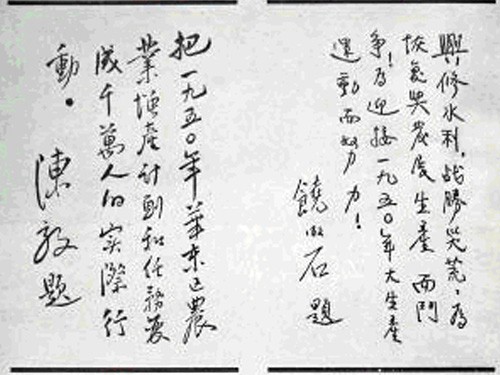 興修水利，战勝災荒，為
恢复與發展生產而鬥
争！為迎接一九五〇年大生產
運動而努力！
饒漱石題
把一九五〇年華東区農
業增產计劃和任務变
成千萬人的實際行
動。
陳毅題